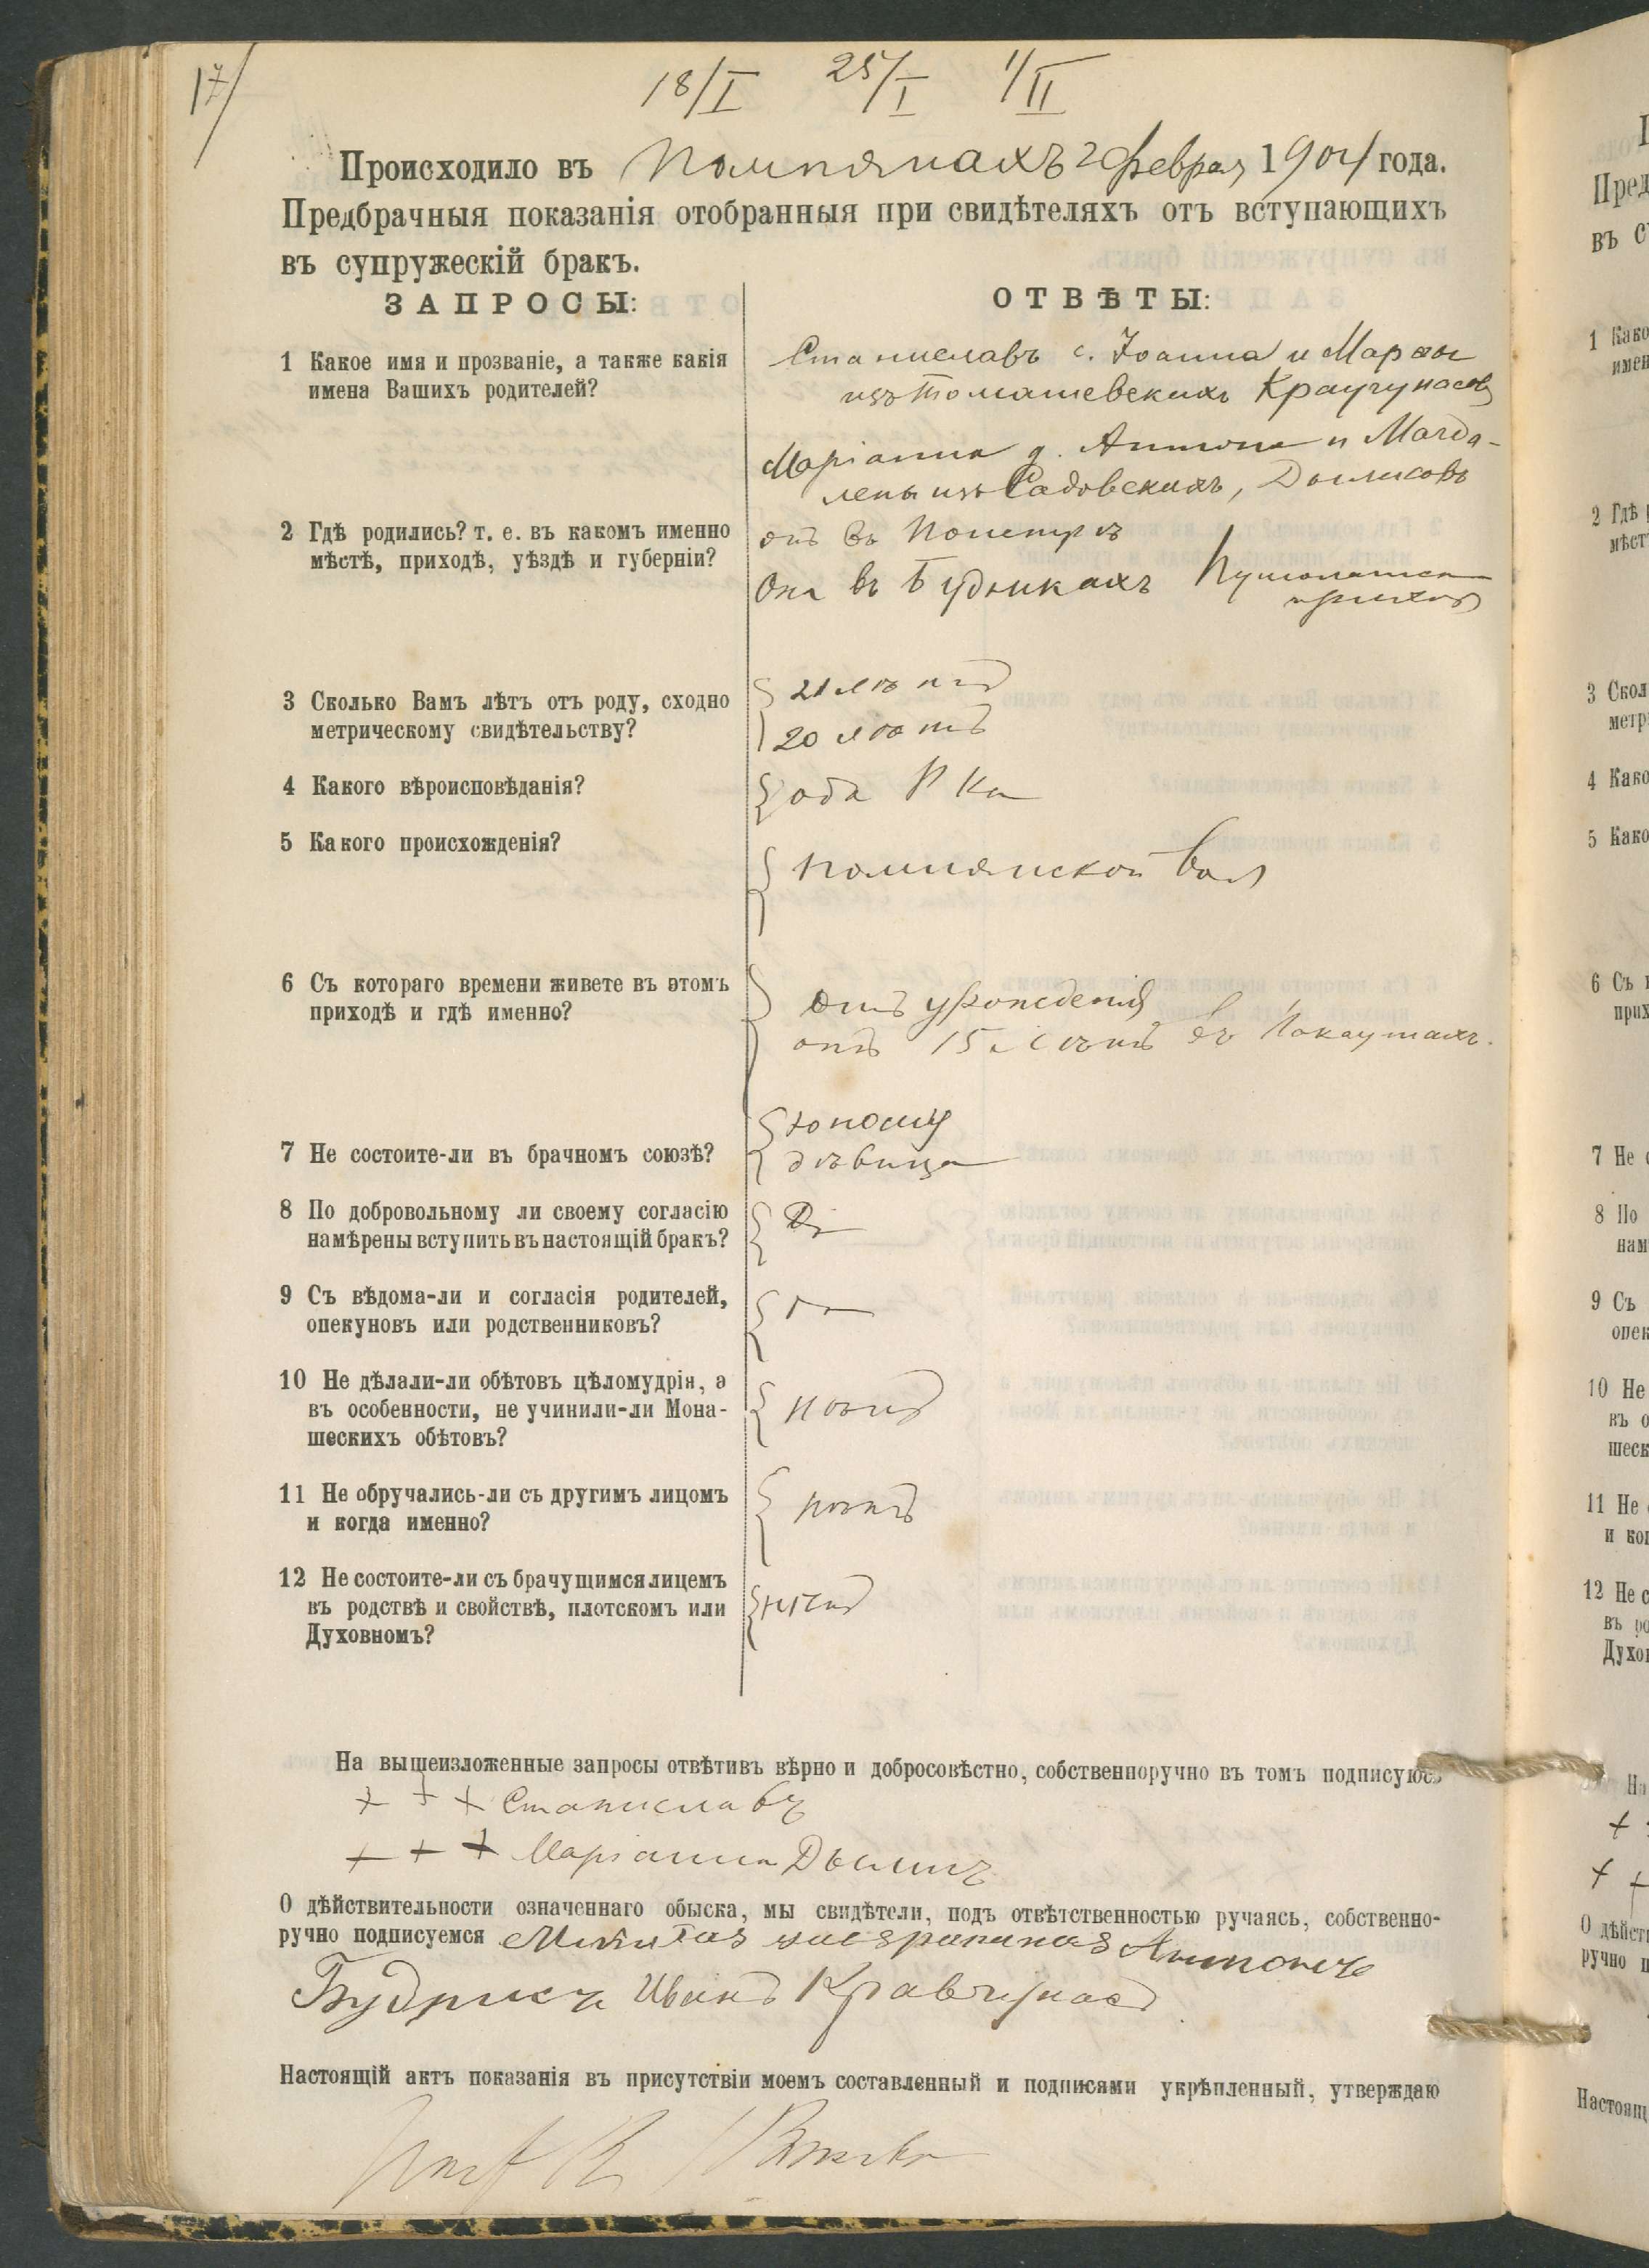 17/
18/I 25/I 1/II
Происходило въ Помпянахъ 2 феврая 1904 года.
Предбрачныя показанія отобранныя при свидѣтеляхъ отъ вступающихъ
въ супружескій бракъ.
ЗАПРОСЫ:
ОТВѢТЫ:
1 Какое имя и прозваніе, а также какія
имена Вашихъ родителей?
Станиславъ с. Іоанна и Марты
изъ Томашевскихъ Краучунасов
Маріанна д. Антона и Магда-
лены изъ Садовскихъ,
2 Гдѣ родились? т. е. въ какомъ именно
мѣстѣ, приходѣ, уѣздѣ и губерніи?
онъ въ
Она въ Будникахъ
3 Сколько Вамъ лѣтъ отъ роду, сходно
метрическому свидѣтельству?
21 лѣтъ
20 лѣтъ
4 Какого вѣроисповѣданія?
оба Р Ка
5 Какого происхожденія?
Помпянской вол
6 Съ котораго времени живете въ этомъ
приходѣ и гдѣ именно?
отъ урожденія
отъ 15 въ
7 Не состоите-ли въ брачномъ союзѣ?
юноша
дѣвица
8 По добровольному ли своему согласію
намѣрены вступить въ настоящій бракъ?
Да
9 Съ вѣдома-ли и согласія родителей,
опекуновъ или родственниковъ?
10 Не дѣлали-ли обѣтовъ цѣломудрія, а
въ особенности, не учинили-ли Мона-
шескихъ обѣтовъ?
нѣтъ
11 Не обручались-ли съ другимъ лицомъ
и когда именно?
нѣтъ
12 Не состоите-ли съ брачущимся лицемъ
въ родствѣ и свойствѣ, плотскомъ или
Духовномъ?
нѣтъ
На вышеизложенные запросы отвѣтивъ вѣрно и добросовѣстно, собственноручно въ томъ подписуюсь
+ + + Станиславъ
+ + + Маріанна
О дѣйствительности означеннаго обыска, мы свидѣтели, подъ отвѣтственностью ручаясь, собственно-
ручно подписуемся
Иванъ Кравчунас
Настоящій актъ показанія въ присутствіи моемъ составленный и подписями укрѣпленный, утверждаю